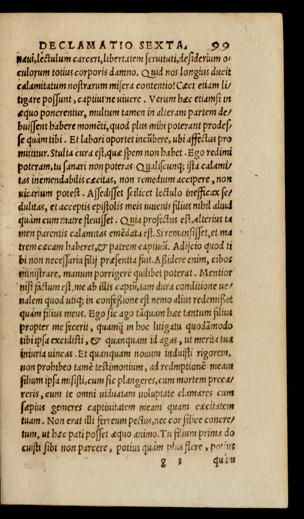 DECLAMATIO SEXTA. 99
naui, lectulum carceri, libertatem seruituti, desiderium o=
culorum totius corporis damno. Quid nos longius ducit
calamitatum nostrarum misera contentio? Cæci etiam li=
tigare possunt, captiui ne uiuere. Verum hæc etiamsi in
æquo ponerentur, multum tamen in alteram partem de=
buissent habere momẽti, quod plus mihi poterant prodes=
se quàm tibi. Et labori oportet incũbere, ubi affectus pro
mittitur. Stulta cura est, quæ spem non habet. Ego redimi
poteram, tu sanari non poteras. Qualiscunq; ista calami=
tas inemendabilis cæcitas, non remedium accipere, non
uicarium potest. Assedisset scilicet lectulo inefficax se=
dulitas, et acceptis epistolis meis iuuenis filius nihil aliud
quàm cum matre fleuisset. Quia profectus est, alterius ta
men parentis calamitas emẽdata est. Si remansisset, et ma
trem cæcam haberet, & patrem captiuũ. Adijcio quod ti
bi non necessaria filij præsentia fuit. Assidere enim, cibos
ministrare, manum porrigere quælibet poterat. Mentior
nisi factum est, me ab illis captũ, tam dura conditione ue=
nalem quod utiq; in confessione est nemo alius redemisset
quàm filius meus. Ego sic ago tãquam hæc tantum filius
propter me fecerit, quamq̃ in hoc litigatu quodãmodo
tibi ipsa excidisti, & quanquam id agas, ut merita tua
iniuria uincas. Et quanquam nouum induisti rigorem,
non prohibeo tamẽ testimonium, ad redmptionẽ meam
filium ipsa misisti, cum sic plangeres, cum mortem preca=
reris, cum te omni uiduatam uoluptate clamares cum
sæpius gemeres captiuitatem meam quàm cæcitatem
tuam. Non erat illi ferreum pectus, nec cor silice concre=
tum, ut hæc pati posset æquo animo. Tu filium prima do
cuisti sibi non parcere, potius quàm plus flere, potius
g 3 quàm